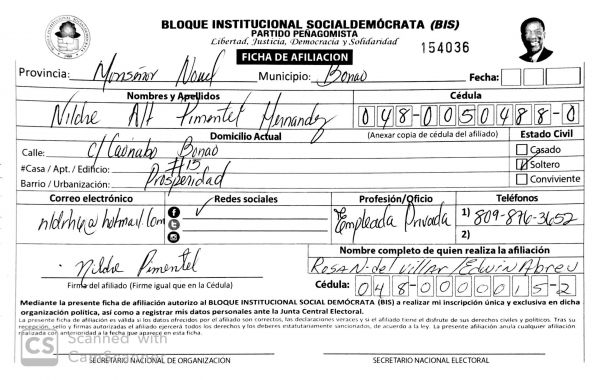 BLOQUE INSTITUCIONAL SOCIALDEMÓCRATA (BIS)
PARTIDO PEÑAGOMISTA
Libertad, Justicia, Democracia y Solidaridad
154036
FICHA DE AFILIACION
Provincia: Monseñor Nouel Municipio: Bonao Fecha:
Nombres y Apellidos Cédula
Nildre Alt Pimentel Hernandez 048-0050488-0
Domicilio Actual (Anexar copia de cédula del afiliado) Estado Civil
Calle: c/ Caonabo Bonao Casado
#Casa / Apt. / Edificio: #15 Soltero
Barrio / Urbanización: Prosperidad Conviviente
Correo electrónico Redes sociales Profesión/Oficio Teléfonos
@hotmail.com Empleada Privada 1) 809-876-3652
2)
Nombre completo de quien realiza la afiliación
Nildre Pimentel Rosa N. del Villar/Edwin Abreu
Firma del afiliado (Firme igual que en la Cédula) Cédula: 048-0000615-2
Mediante la presente ficha de afiliación autorizo al BLOQUE INSTITUCIONAL SOCIAL DEMÓCRATA (BIS) a realizar mi inscripción única y exclusiva en dicha
organización política, así como a registrar mis datos personales ante la Junta Central Electoral.
La presente ficha de afiliación es válida si los datos ofrecidos por el afiliado son correctos, las declaraciones veraces y si el afiliado tiene el disfrute de sus derechos civiles y políticos. Tras su
recepción, sello y firmas autorizadas el afiliado ejercerá todos los derechos y los deberes estatutariamente sancionados, de acuerdo a la ley. La presente afiliación anula cualquier afiliación
realizada con anterioridad a la fecha que aparece en esta ficha.
CS Scanned with
CamScanner
SECRETARIO NACIONAL DE ORGANIZACIÓN SECRETARIO NACIONAL ELECTORAL